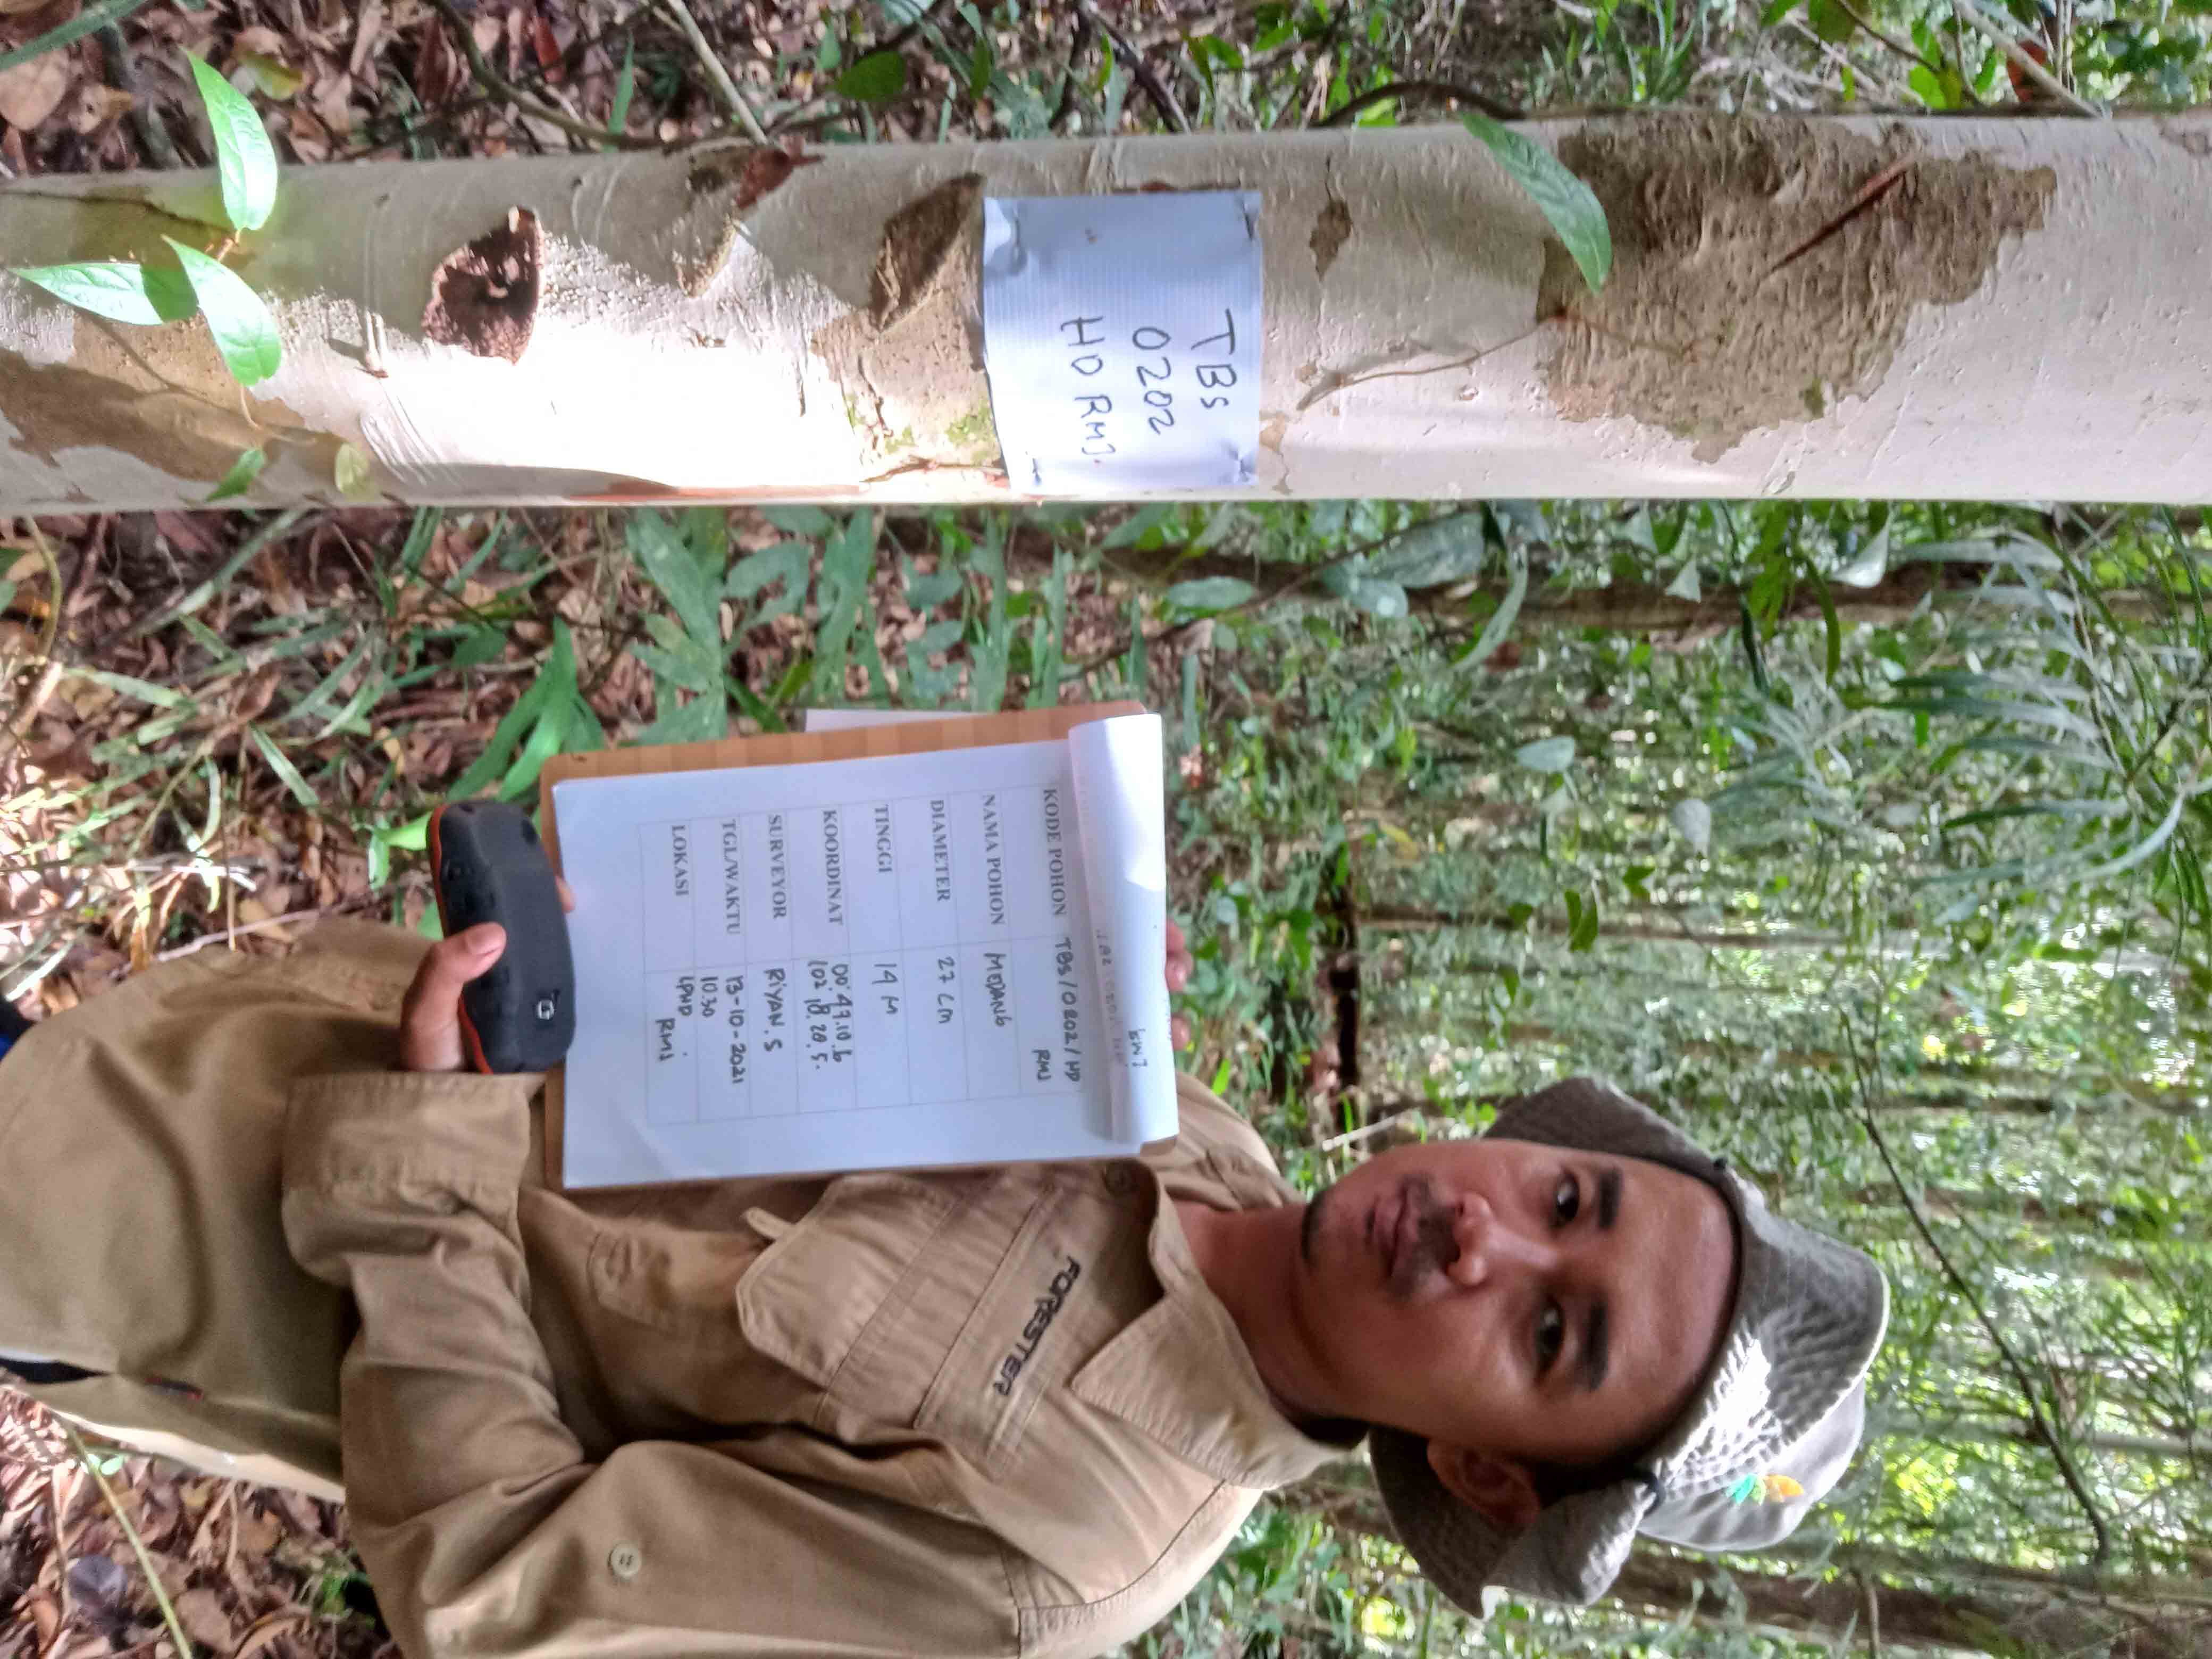 TBs
0202
HD RMJ.
KODE POHON TBs/0202/HD
RMJ
NAMA POHON MEDANG
DIAMETER 27 CM
TINGGI 14 M
KOORDINAT 00.47.10.6
102 18.20.5.
SURVEYOR RIYAN.S
TGL/WAKTU 13-10-2021
10.30
LOKASI LPHD
RMJ
FORESTER